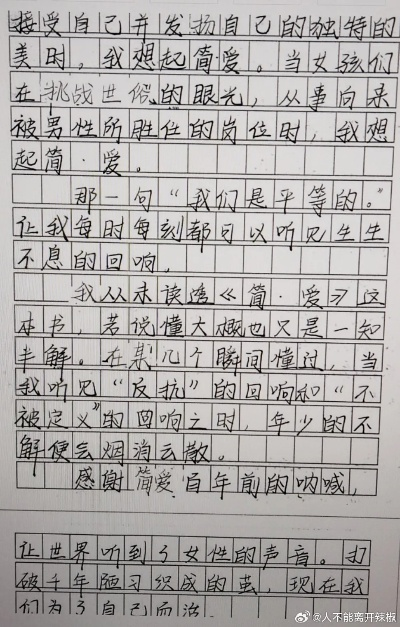 接受自己并发扬自己的独特的
美时，我想起简爱。当女孩们
在挑战世俗的眼光，从事向来
被男性所胜任的岗位时，我想
起简·爱。
那一句“我们是平等的。”
让我每时每刻都可以听见生生
不息的回响，
我从未读透《简·爱》这
本书，若说懂大概也只是一知
半解。在某几个瞬间懂过，当
我听见“反抗”的回响和“不
被定义”的回响之时，年少的不
解便会烟消云散。
感谢简爱百年前的呐喊，
让世界听到了女性的声音。打
破千年陋习织成的茧，现在我
们为了自己而活
@人不能离开辣椒